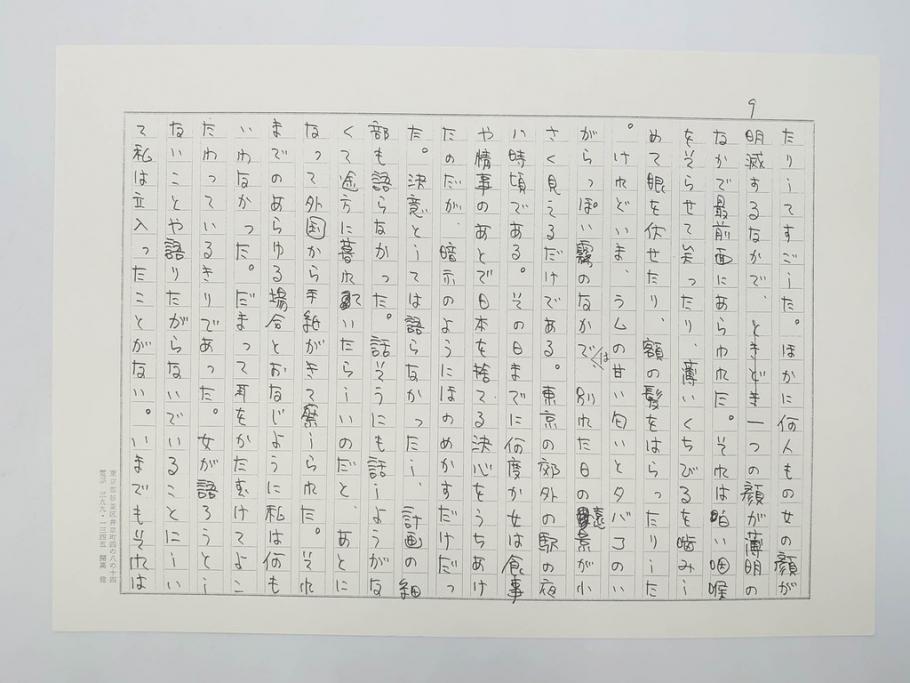 9
たりしてすごした。ほかに何人もの女の顔が
明滅するなかで、ときどき一つの顔が薄明の
なかで最前面にあらわれた。それは白い咽喉
をそらせて笑ったり、薄いくちびるを噛みし
めて眼を伏せたり、額の髪をはらったりした
。けれどいま、うるしの甘い匂いとタバコのい
がらっぽい霧のなかでは、別れた日の遠景が小
さく見えるだけである。東京の郊外の駅の夜
い時頃である。その日までに何度か女は食事
や情事のあとで日本を捨てる決心をうちあけ
たのだが、暗示のようにほのめかすだけだっ
た。決意としては語らなかったし、計画の細
部も語らなかった。話そうにも話しようがな
くて途方に暮れていたらしいのだと、あとに
なって外国から手紙がきて察しられた。それ
までのあらゆる場合とおなじように私は何も
いわなかった。だまって耳をかたむけてよこ
たわっているきりであった。女が語ろうとし
ないことや語りたがらないでいることにしい
て私は立入ったことがない。いまでもそれは
東京都杉並区井草町四の八の十四
電話 三九九・一三四五 開高 健